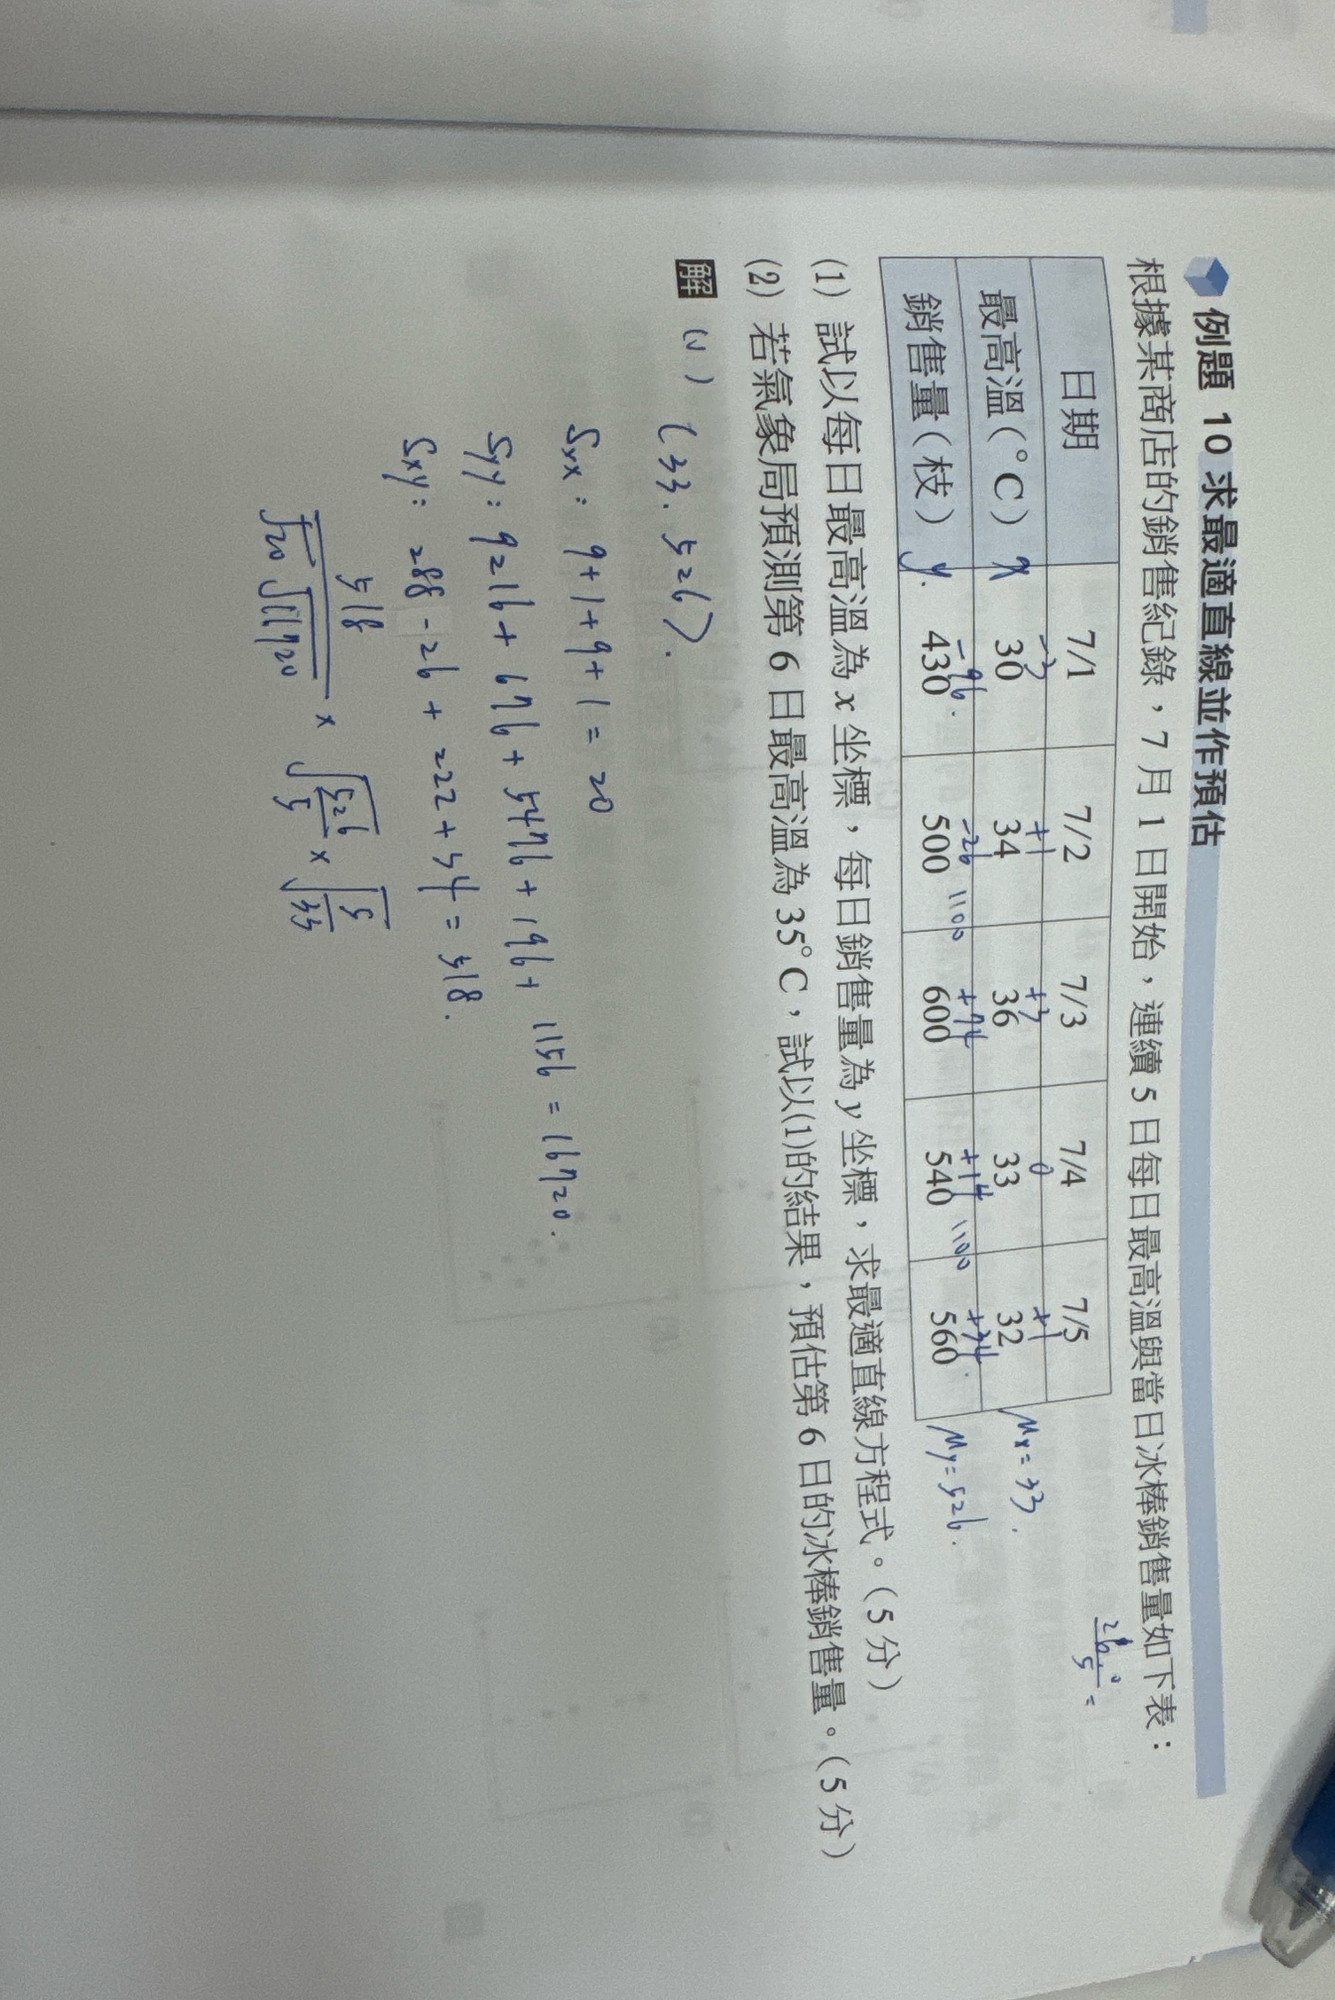 例題 10 求最適直線並作預估
根據某商店的銷售紀錄，7 月 1 日開始，連續 5 日每日最高溫與當日冰棒銷售量如下表：
26.0/5 =
日期 7/1 7/2 7/3 7/4 7/5
-3 +1 +3 0 +1
最高溫(°C) x 30 34 36 33 32 μx = 33.
-96. -26 1100 +74 +14 1100 +34.
銷售量(枝) y. 430 500 600 540 560 μy = 526.
(1) 試以每日最高溫為 x 坐標，每日銷售量為 y 坐標，求最適直線方程式。(5 分)
(2) 若氣象局預測第 6 日最高溫為 35°C，試以(1)的結果，預估第 6 日的冰棒銷售量。(5 分)
解 (1) (33. 526).
Sxx : 9+1+9+1 = 20
Syy : 9216 + 676 + 5476 + 196 + 1156 = 16720.
Sxy : 288 - 26 + 222 + 34 = 518.
518/√20 √16720 × √526/5 × √5/33